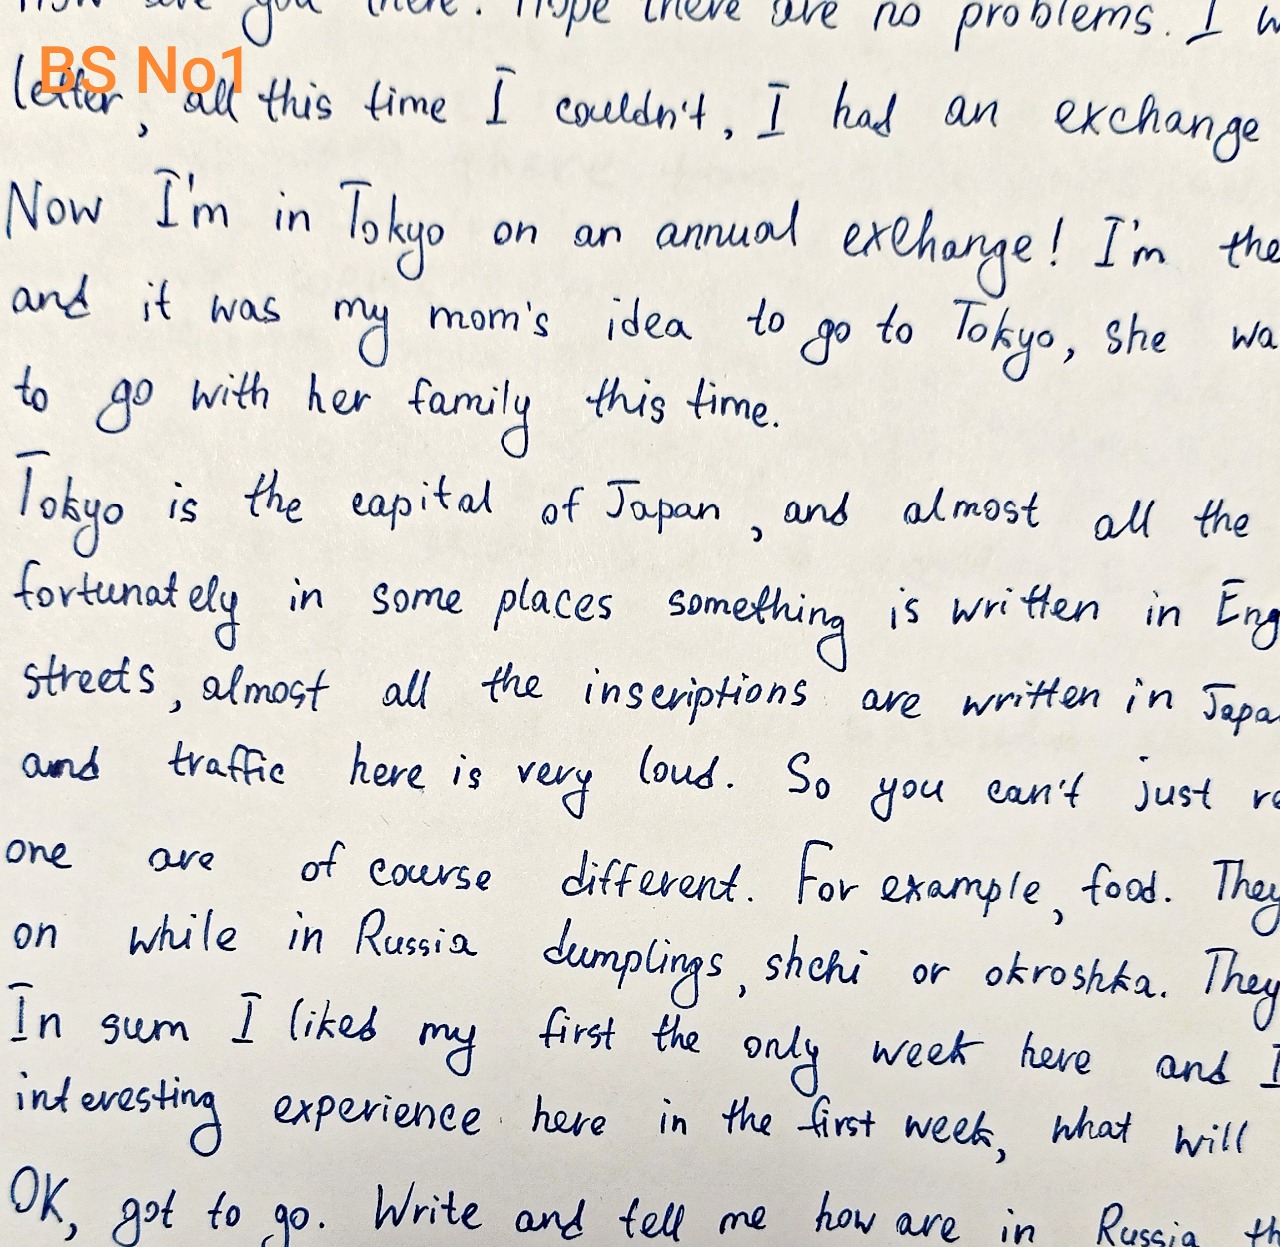 How are you there? Hope there are no problems. I
BS No1
letter, all this time I couldn't, I had an exchange
Now I'm in Tokyo on an annual exchange! I'm the
and it was my mom's idea to go to Tokyo, she wa
to go with her family this time.
Tokyo is the capital of Japan, and almost all the
fortunately in some places something is written in Eng
streets, almost all the inscriptions are written in Japa
and traffic here is very loud. So you can't just re
one are of course different. For example, food. They
on while in Russia dumplings, shchi or okroshka. They
In sum I liked my first the only week here and I
interesting experience here in the first week, what will
OK, got to go. Write and tell me how are in Russia th